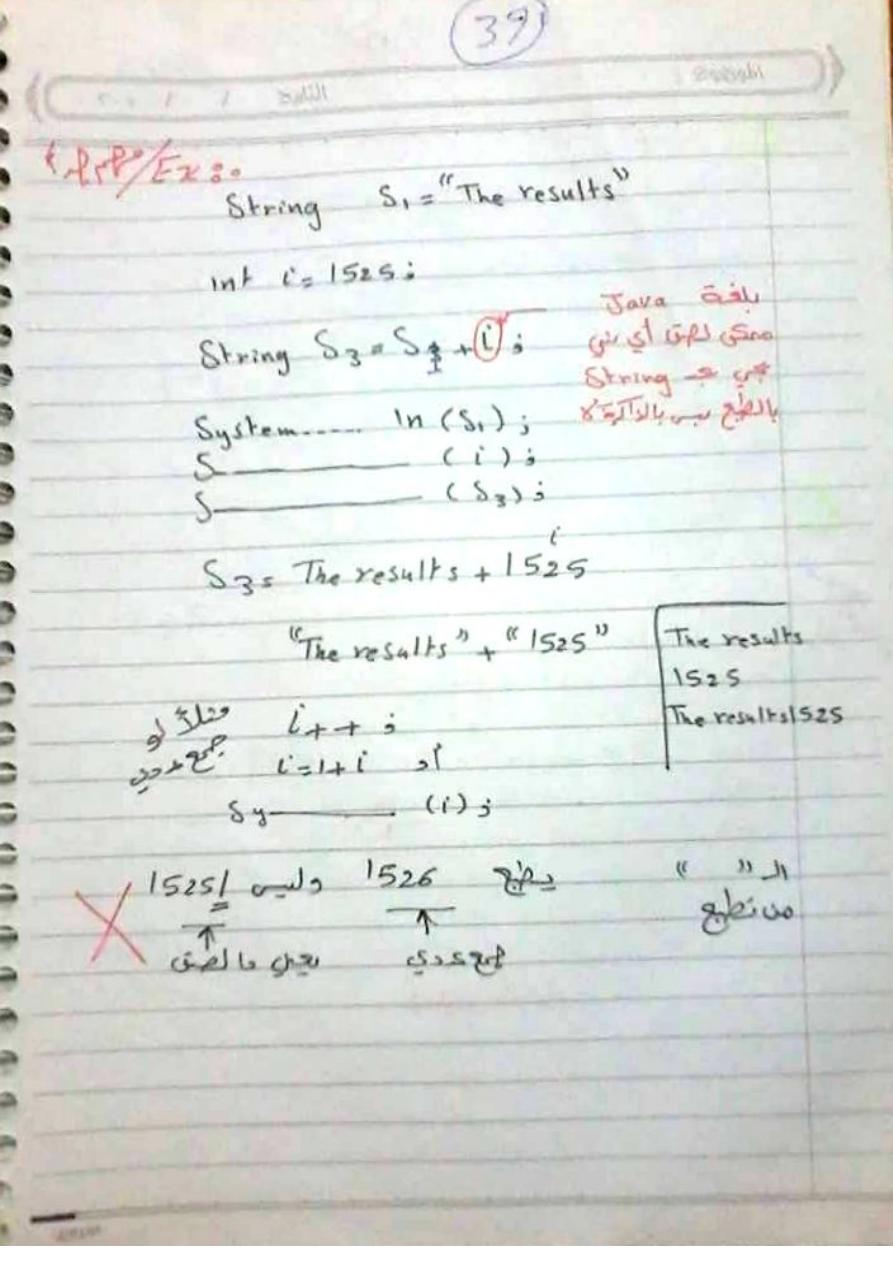 39
التاريخ / /
الموضوع
مهم/Ex:
String S1="The results"
int i=1525;
String S3=S1+i;
بلغة Java
ممكن لصق أي شي
String
بالطبع بس بالذاكرة لا
System...... ln (S1);
S (i);
S (S3);
i
S3= The results + 1525
"The results" + "1525"
The results
1525
The results1525
مثلاً لو
جمع عددي
i++;
أو i=1+i
Sy (i);
يطبع 1526 وليس 15251
جمع عددي
يعني ما لصق
الـ " "
من تطبع